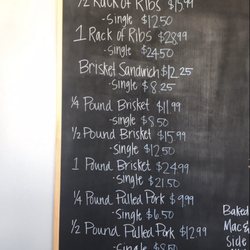 ½ Rack of Ribs $15.99
-Single $12.50
1 Rack of Ribs $28.99
-Single $24.50
Brisket Sandwich $12.25
-Single $8.25
¼ Pound Brisket $11.99
-Single $8.50
½ Pound Brisket $15.99
-Single $12.50
1 Pound Brisket $24.99
-Single $21.50
¼ Pound Pulled Pork $9.99
-Single $6.50
½ Pound Pulled Pork $12.99
-Single $8.50
Baked
Mac &
Side